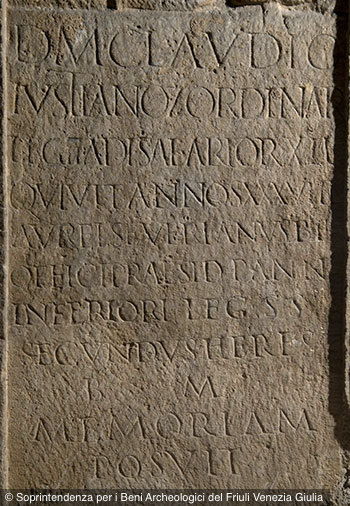 D M CLAVDIO
IVSTIANO ORDINA
LEG II ADI SALARIOR
QVI VIXIT ANNOS
AVREL SEVERIANVS
OFFICII PRAESIDI PANN
INFERIORI LEG SS
SECVNDVS HERE
B M
MEMORIAM
POSVIT
© Soprintendenza per i Beni Archeologici del Friuli Venezia Giulia